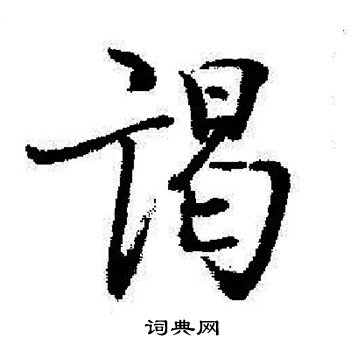 谒
词典网